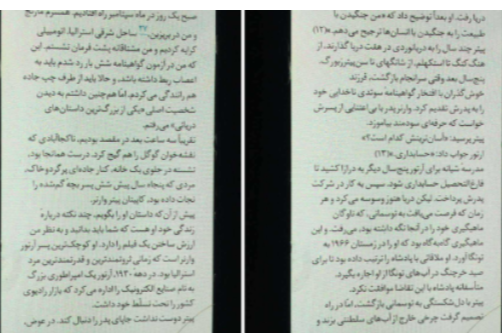 صبح یک روز در ماه سپتامبر راه افتادیم. همسرم مارتج
و من در بریزبین، ۳۲ ساحل شرقی استرالیا، اتومبیلی
کرایه کردیم و من مشتاقانه پشت فرمان نشستم. این
که من در آزمون گواهینامه شش بار رد شدم باید به
اعصاب ربط داشته باشد، و حالا باید از طرف چپ جاده
هم رانندگی می کردم. اما همچنین داشتم به دیدن
شخصیت اصلی «یکی از بزرگ‌ترین داستان‌های
دریائی» می‌رفتم.
تقریباً سه ساعت بعد در مقصد بودیم، ناکجاآبادی که
نقشه‌خوان گوگل را هم گیج کرد. درست همانجا بود،
نشسته در جلوی یک خانه، کنار جاده‌ای پر گرد و خاک،
مردی که پنجاه سال پیش شش پسر بچه گم‌شده را
نجات داده بود، کاپیتان پیتر وارنر.
پیش از آن که داستان او را بگویم، چند نکته درباره
زندگی خود او هست که شما باید بدانید و به نظر من
ارزش ساختن یک فیلم را دارد. او کوچک‌ترین پسر آرتور
وارنر است که زمانی ثروتمندترین و قدرتمندترین مرد
استرالیا بود. در دهه ۱۹۳۰، آرتور یک امپراطوری بزرگ
به نام صنایع الکترونیک را اداره می کرد که بازار رادیوی
کشور را تحت تسلط خود داشت.
پیتر دوست نداشت جاپای پدر را دنبال کند. در عوض،
دریا رفت. او بعداً توضیح داد که «من جنگیدن با
طبیعت را به جنگیدن با انسان‌ها ترجیح می دهم.»(۱۲)
پیتر چند سال را به دریانوردی در هفت دریا گذارند، از
هنگ کنگ تا استکهلم، از شانگهای تا سن‌پیترزبورگ.
پنج‌سال بعد وقتی سرانجام بازگشت، فرزند
خوش‌گذران با افتخار گواهینامه سوئدی ناخدایی خود
را به پدرش تقدیم کرد. وارنر پدر با بی اعتنایی از پسرش
خواست که حرفه‌ای سودمند بیاموزد.
پیتر پرسید: «آسان‌ترینش کدام است؟»
آرتور جواب داد: «حسابداری.»(۱۳)
مدرسه شبانه برای آرتور پنج‌سال دیگر به درازا کشید تا
فارغ‌التحصیل حسابداری شود. سپس به کار در شرکت
پدرش پرداخت. لیکن دریا هنوز وسوسه می کرد و هر
زمان که فرصت می‌یافت به توسمانی، که ناوگان
ماهیگیری خود را در آنجا نگه داشته بود، می‌رفت. و این
ماهیگیری گاه‌به‌گاه بود که او را در زمستان ۱۹۶۶ به
تونگا آورد. او ملاقاتی با پادشاه را ترتیب داده بود تا برای
صید خرچنگ در آب‌های تونگا از او اجازه بگیرد.
متأسفانه پادشاه با این تقاضا موافقت نکرد.
پیتر با دل‌شکستگی به توسمانی بازگشت. اما در راه
تصمیم گرفت چرخی خارج از آب‌های سلطنتی بزند و